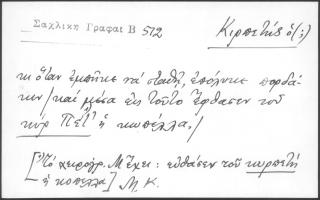 Σαχλίκη Γραφαὶ Β 572
Κιρπετής ὁ(;)
κι ὅταν ἐμπῆκε νὰ σταθῇ, ἐπόληκε πορδά-
κιν / καὶ μέσα εἰς τοῦτο ἔφθασεν τοῦ
κὺρ Πετ ἡ κωπέλλα. /
[Τὸ χειρόγρ. Μ ἔχει: εὐθάσεν τοῦ κυρπετῆ
ἡ κοπελλα] Μ.Κ.